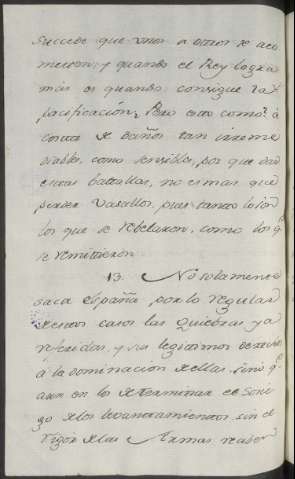 succede que unos a otros se aco
meten; y quando el Rey logra
más es quando consigue la
pacificación; Pero esto como à
costa de daños tan irreme
diables, como sensibles, por que dar
estas batallas, no es mas que
perder Vasallos, pues tanto lo son
los que se rebelaron, como los q.e
se remitieron.
13. No solamente
saca España por lo regular
de estos casos las quiebras ya
referidas, y sus legitimos derechos
á la dominacion de ellas, sino q.e
aun en lo determinar el
go de los levantamientos sin el
rigor de las Armas